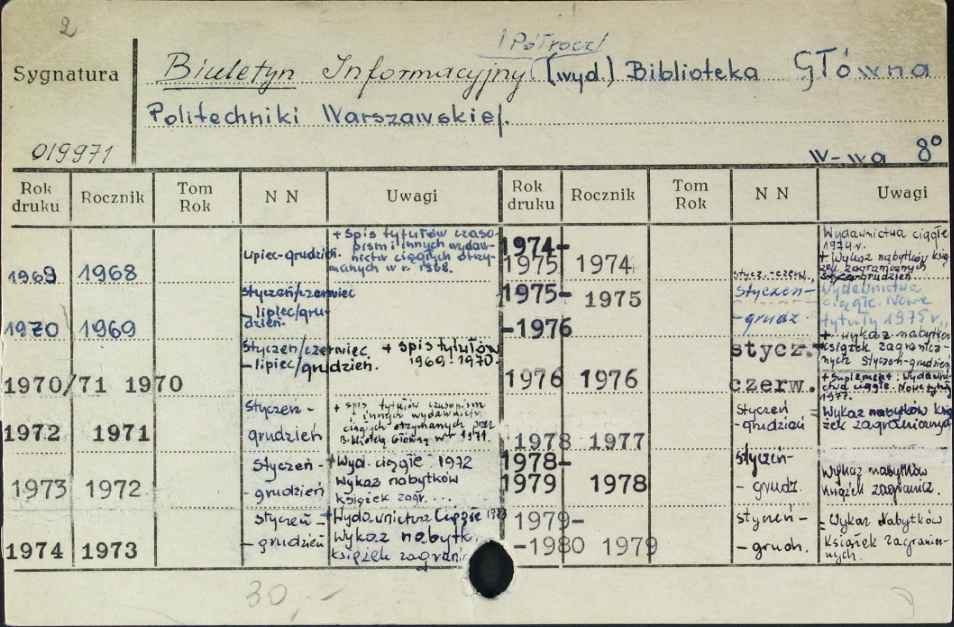 2
| Półrocz|
Sygnatura Biuletyn Informacyjny (wyd.) Biblioteka Główna
Politechniki Warszawskiej.
019971 W-wa 8°
Rok druku Rocznik Tom Rok N N Uwagi Rok druku Rocznik Tom Rok N N Uwagi
1969 1968 lipiec-grudzień.
+ Spis tytułów czaso-
pism i innych wydaw-
nictw ciągłych otrzy-
manych w r. 1968.
1970 1969 styczeń/czerwiec
- lipiec/gru-
dzień.
1970/71 1970 Styczeń/czerwiec
- lipiec/grudzień.
+ Spis tytułów
1969-1970-
1972 1971 Styczeń -
grudzień
+ spis tytułów czasopism
i innych wydawnictw
ciągłych otrzymanych przez
Bibliotekę Główną w r. 1971.
1973 1972 Styczeń -
- grudzień
+ Wyd. ciągłe 1972
Wykaz nabytków
książek zagr....
1974 1973 styczeń -
- grudzień
+ Wydawnictwa Ciągłe 1973
Wykaz nabytk.
książek zagranic
1974-
1975 1974 stycz.-czerw.
Wydawnictwa ciągłe
1974 r.
+ Wykaz nabytków ksią
żek zagranicznych
grudzień
1975-
-1976 1975 styczeń-
-grudz
Wydawnictwa
ciągłe. Nowe
tytuły 1975 r.
+ Wykaz nabytków
książek zagranicz-
nych Styczeń-grudzień
1976 1976 stycz.-
czerw.
+ Suplement: Wydawnic
twa ciągłe. Nowe tytuły
1977.
1978 1977 Styczeń
-grudzień
= Wykaz nabytków ksią
żek zagranicznych
1978-
1979 1978 styczeń-
- grudz.
Wykaz nabytków
książek zagranicz.
1979-
-1980 1979 styczeń-
- grudz.
= Wykaz Nabytków
Książek Zagranicz-
nych.
30,-